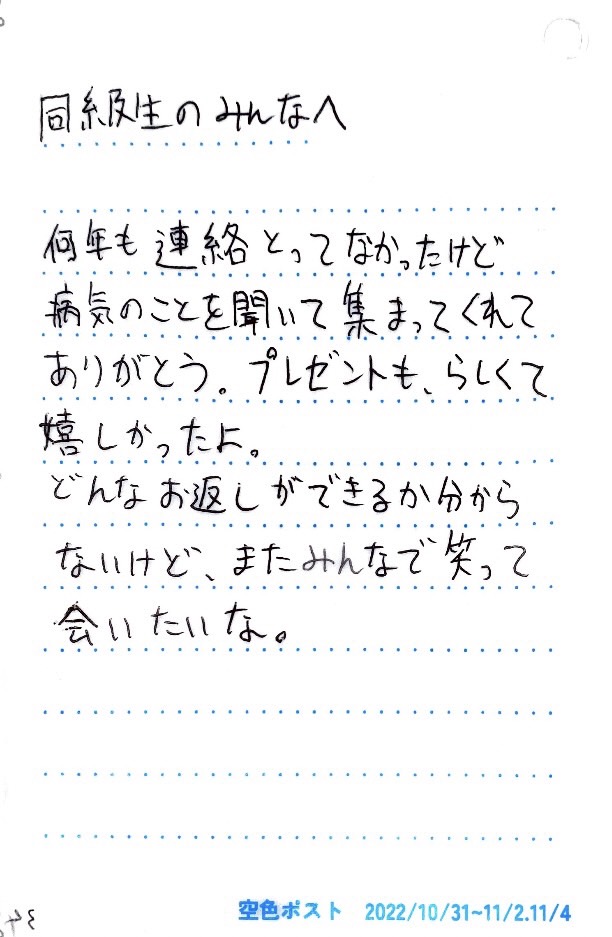 同級生のみんなへ
何年も連絡とってなかったけど
病気のことを聞いて集まってくれて
ありがとう。プレゼントも、らしくて
嬉しかったよ。
どんなお返しができるか分から
ないけど、またみんなで笑って
会いたいな。
空色ポスト 2022/10/31~11/2.11/4